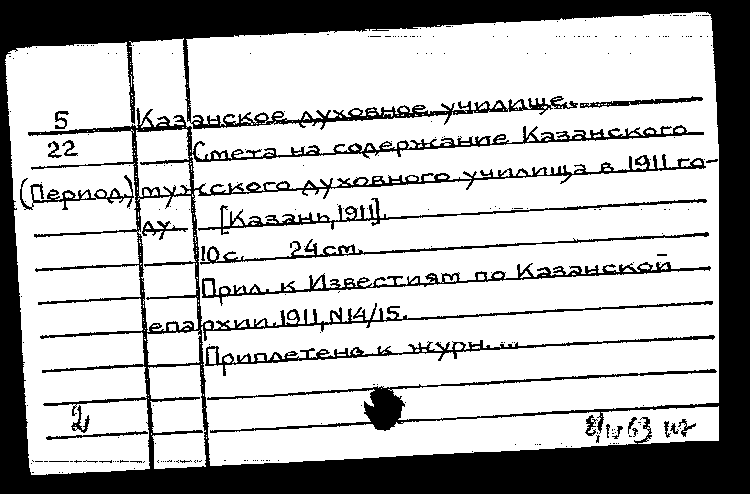 5 Казанское духовное училище.
22 Смета на содержание Казанского
(Период) мужского духовного училища в 1911 го-
ду. [Казань, 1911].
10 с. 24 см.
Прил. к Известиям по Казанской
епархии. 1911, N14/15.
Приплетена к журн. ...
2
8/IV 63